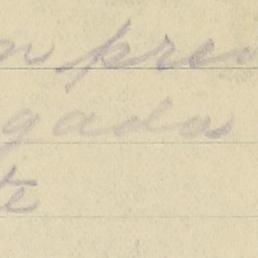 n pren
gada
te